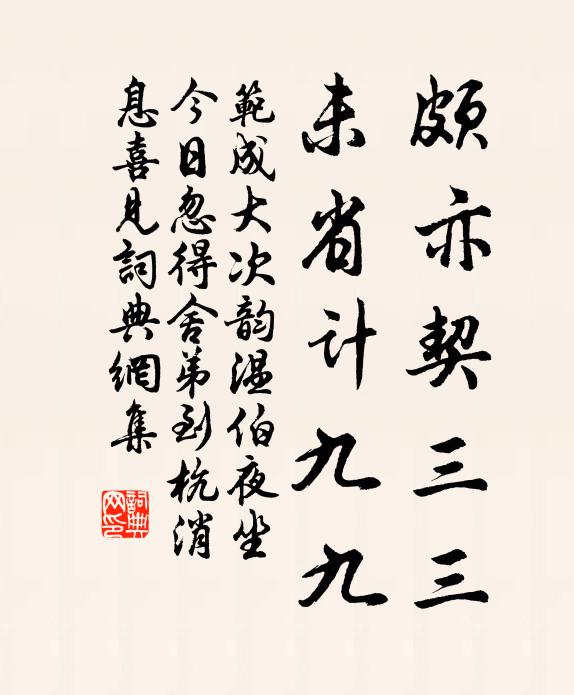 頗亦契三三
未省计九九
範成大次韵温伯夜坐
今日忽得舍弟到杭消
息喜見詞典網集
詞典
网印